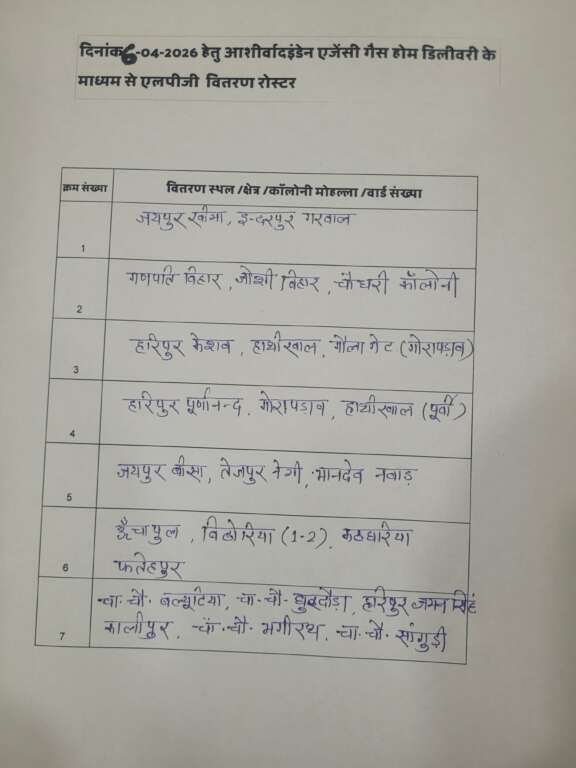 दिनांक 6-04-2026 हेतु आशीर्वादइंडेन एजेंसी गैस होम डिलीवरी के
माध्यम से एलपीजी वितरण रोस्टर
क्रम संख्या वितरण स्थल /क्षेत्र /कॉलोनी मोहल्ला /वार्ड संख्या
1 जयपुर खीमा, इन्दरपुर गरवाल
2 गणपति विहार, जोशी विहार, चौधरी कॉलोनी
3 हरिपुर केशव, हाथीखाल, गौला गेट (गोरापड़ाव)
4 हरिपुर पूर्णानन्द, गोरापडाव, हाथीखाल (पूर्वी)
5 जयपुर बीसा, तेजपुर नेगी, भानदेव नवाड़
6 ऊँचापुल, बिठोरिया (1-2), कठघरिया
फतेहपुर
7 चा. चौ. बल्यूटिया, चा. चौ. घुड़दौड़ा, हरिपुर जगत सिंह
कालीपुर, चा. चौ. भगीरथ, चा. चौ. सांगुड़ी